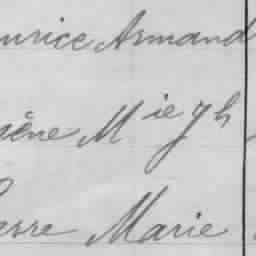 urice Armand
ène M ie g h
erre Marie